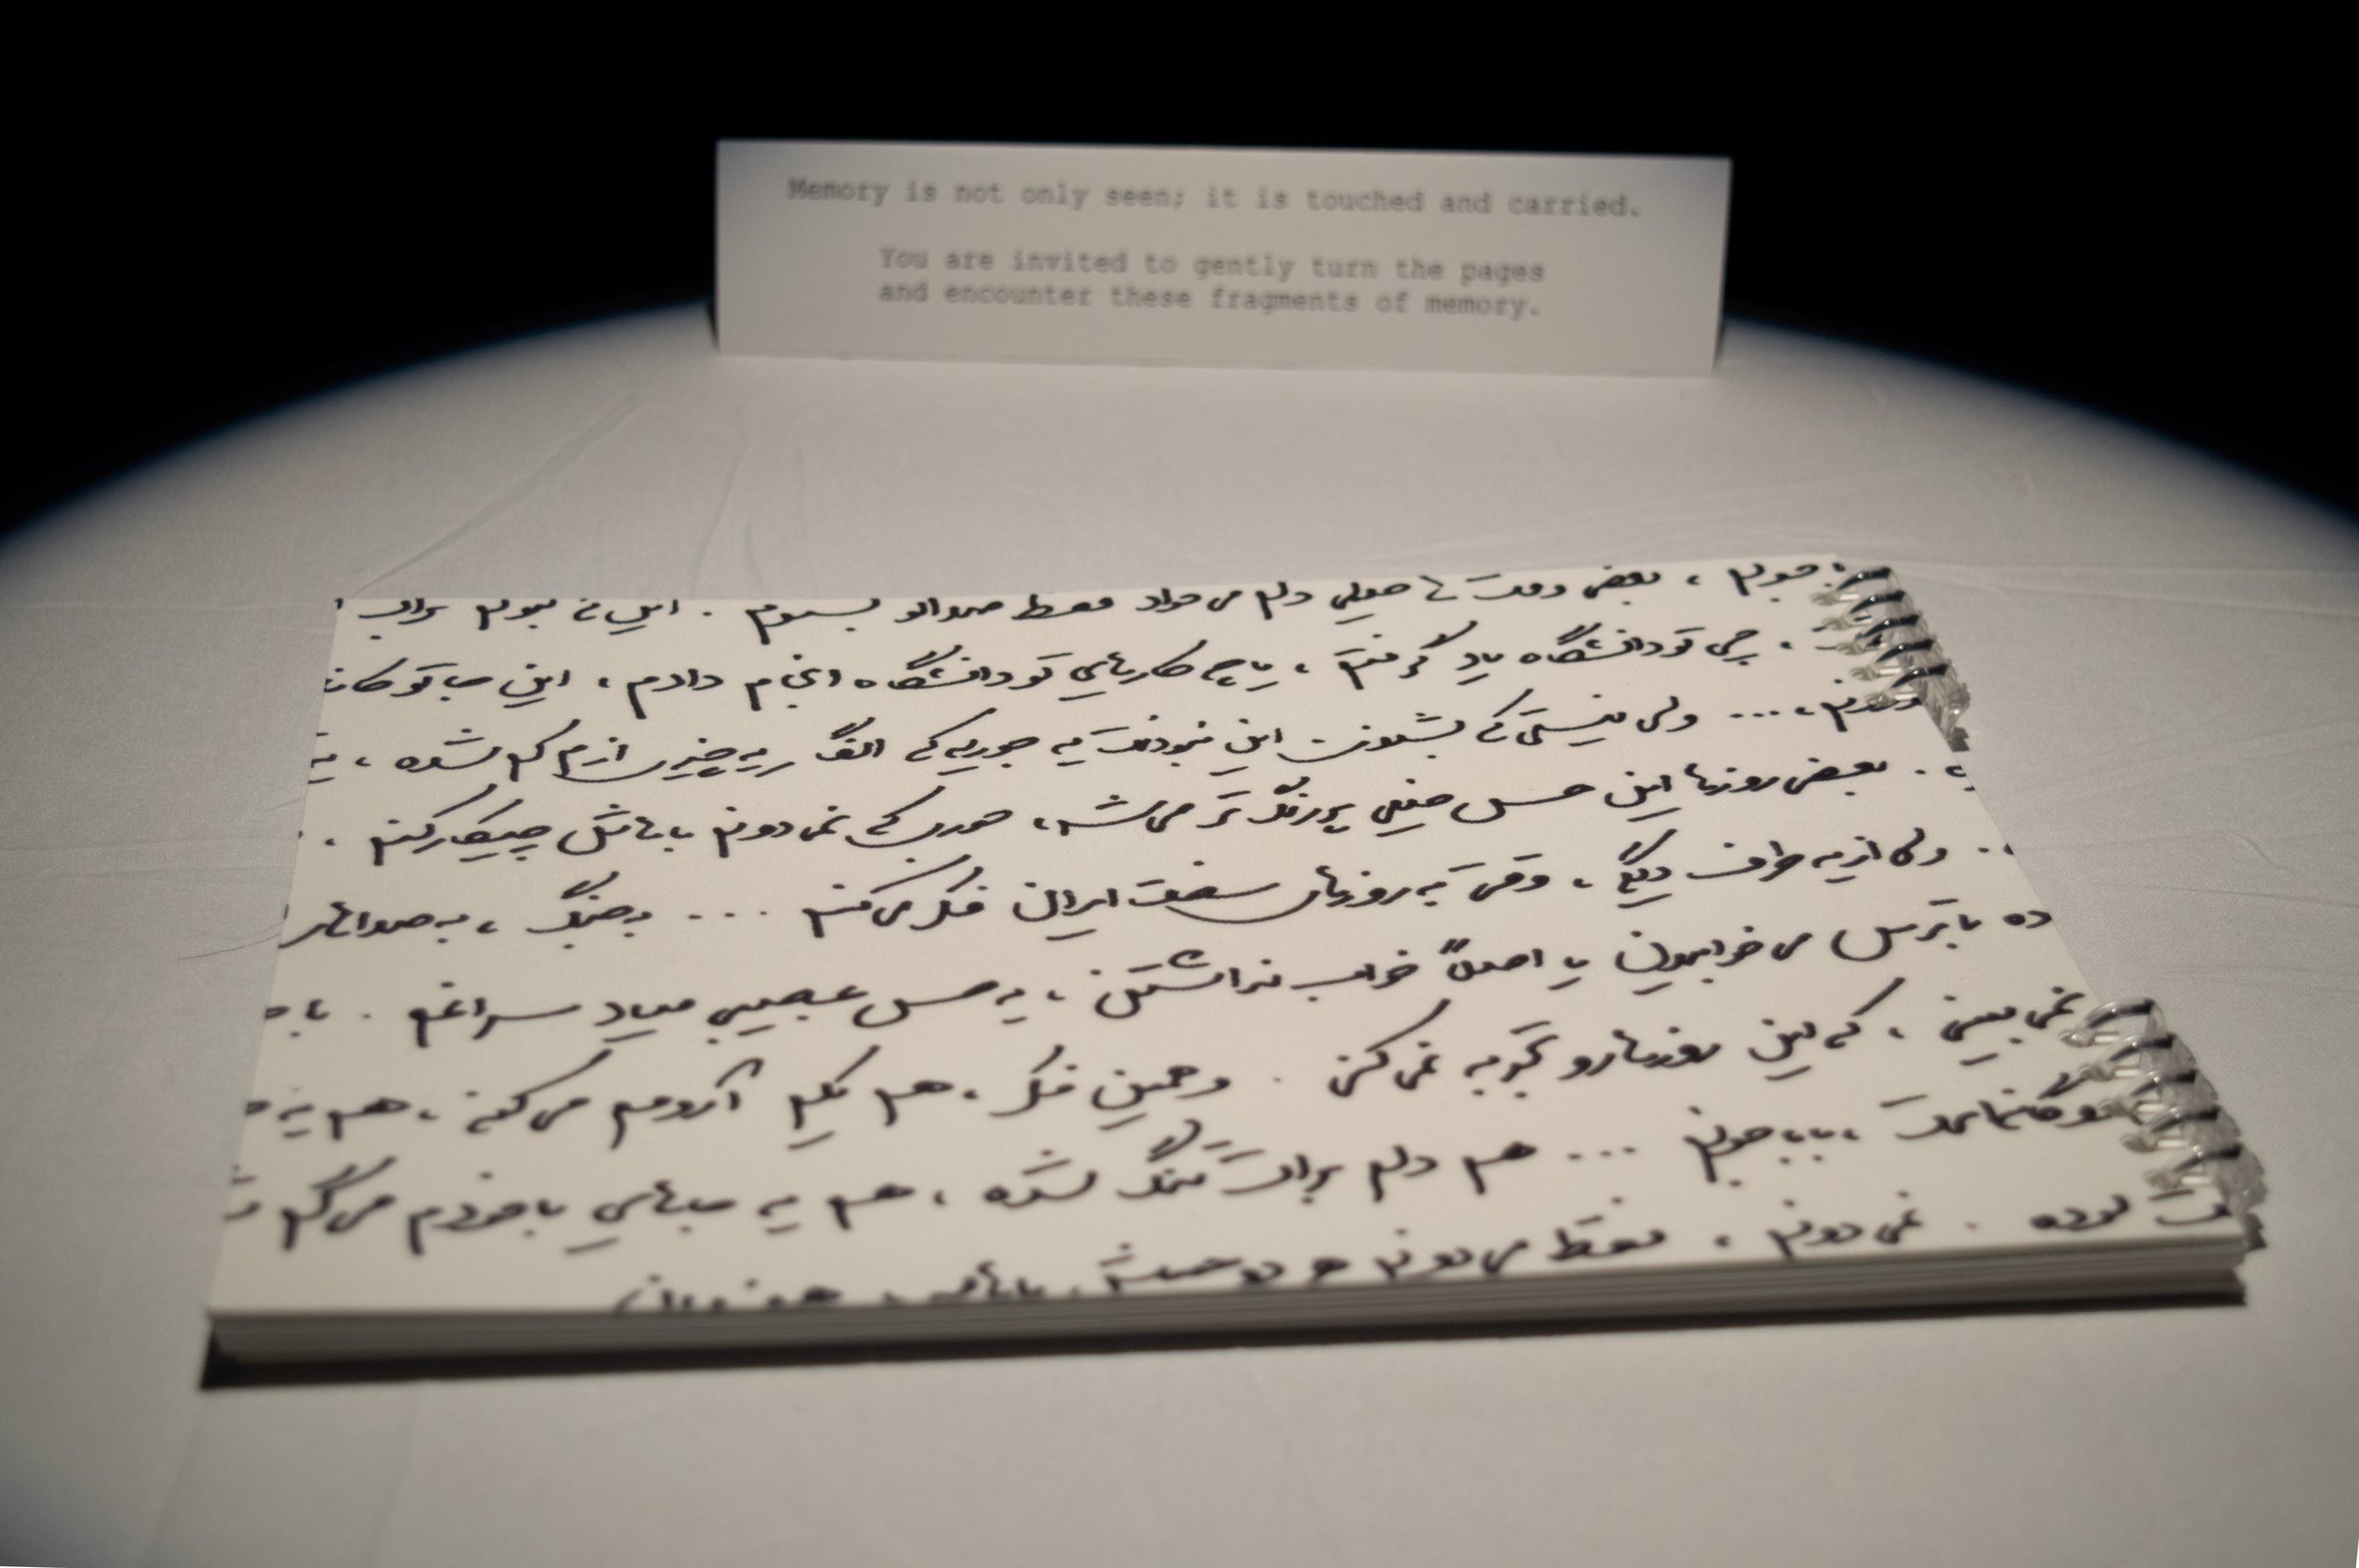 Memory is not only seen; it is touched and carried.
You are invited to gently turn the pages
and encounter these fragments of memory.
جونم ، بعضی وقت‌ها خیلی دلم می‌خواد فقط صداتو بشنوم . این‌که بتونم برات
، چی تو دانشگاه یاد گرفتم ، یا چه کارهایی تو دانشگاه انجام دادم ، این
... ولی نیستی که بشنوی این نبودنت یه جوریه که انگار یه چیزی ازم کم شده ، یه
. بعضی روزها این حس خیلی پررنگ‌تر می‌شه ، جوری که نمی‌دونم باهاش چیکار کنم .
. ولی از یه طرف دیگه ، وقتی به روزهای سخت ایران فکر می‌کنم ... به جنگ ، به صداهای
ده با ترس می‌خوابیدن یا اصلاً خواب نداشتن ، یه حس عجیبی میاد سراغم . با
نمی‌بینی ، که این روزها رو تجربه نمی‌کنی . و همین فکر ، هم یکم آرومم می‌کنه ، هم یه
، بابا جونم ... هم دلم برات تنگ شده ، هم یه جاهایی با خودم می‌گم
بوده . نمی‌دونم ، فقط می‌دونم